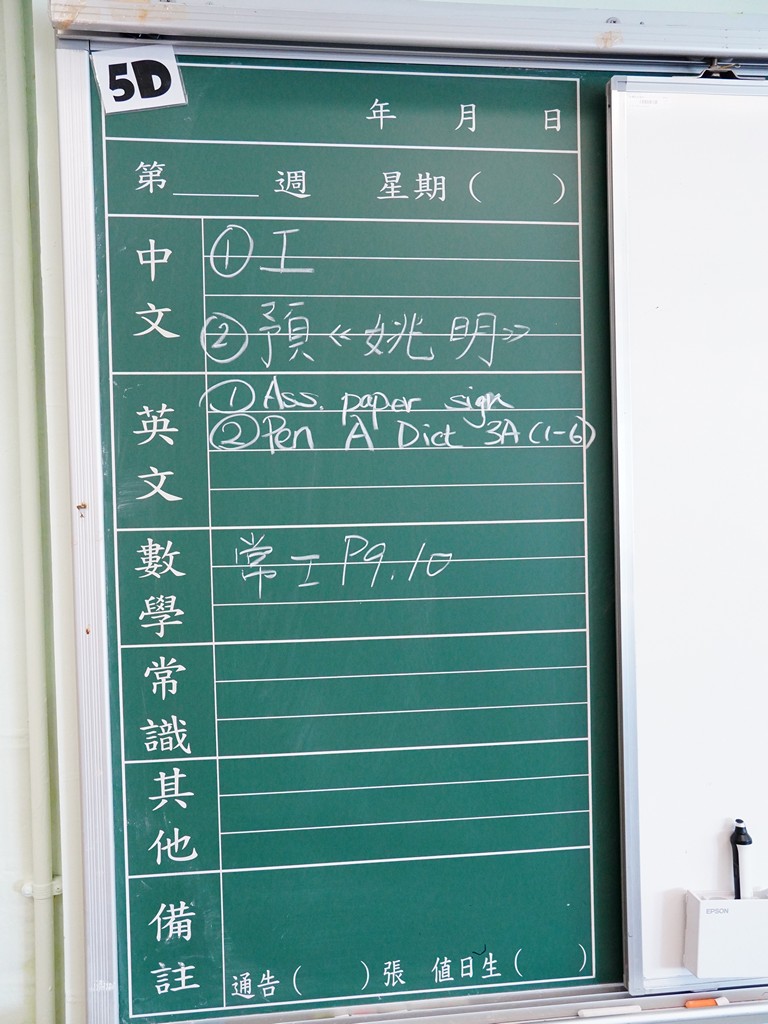 5D
年 月 日
第____週 星期( )
中文
①工
②預《姚明》
英文
①Ass. paper sign
②Pen A Dict 3A(1-6)
數學
常工P9.10
常識
其他
備註
通告( )張 值日生( )
EPSON